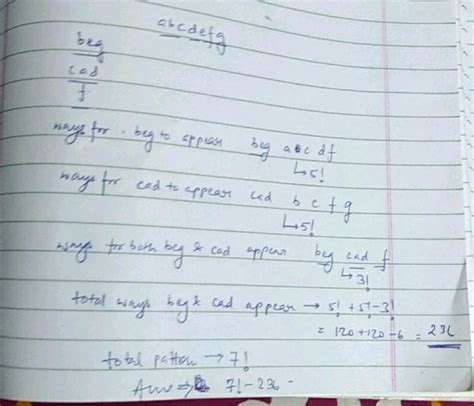 abcdefg
beg
cad
f
ways for beg to appear beg a c d f
↳5!
ways for cad to appear cad b c f g
↳5!
ways for both beg & cad appear beg cad f
↳3!
total ways beg & cad appear → 5! + 5! - 3!
= 120 + 120 - 6 = 236
total pattern → 7!
Ans ⇒ 7! - 236